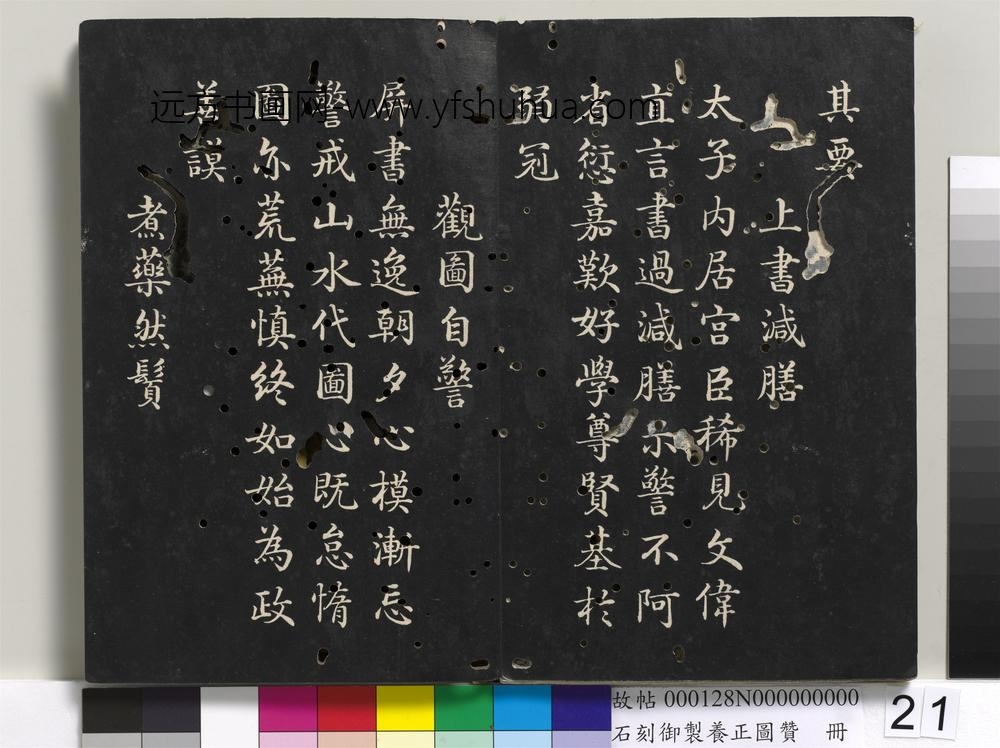 其要
上書減膳
太子内居宫臣稀見文偉
直言書過減膳示警不阿
省愆嘉歎好學尊賢基於
弱冠
觀圖自警
屏書無逸朝夕心模漸忘
警戒山水代圖心既怠惰
圖亦荒蕪慎終如始為政
善謨
煮藥然鬚
远方书画网-www.yfshuhua.com
故帖 000128N000000000
石刻御製養正圖贊 冊
21